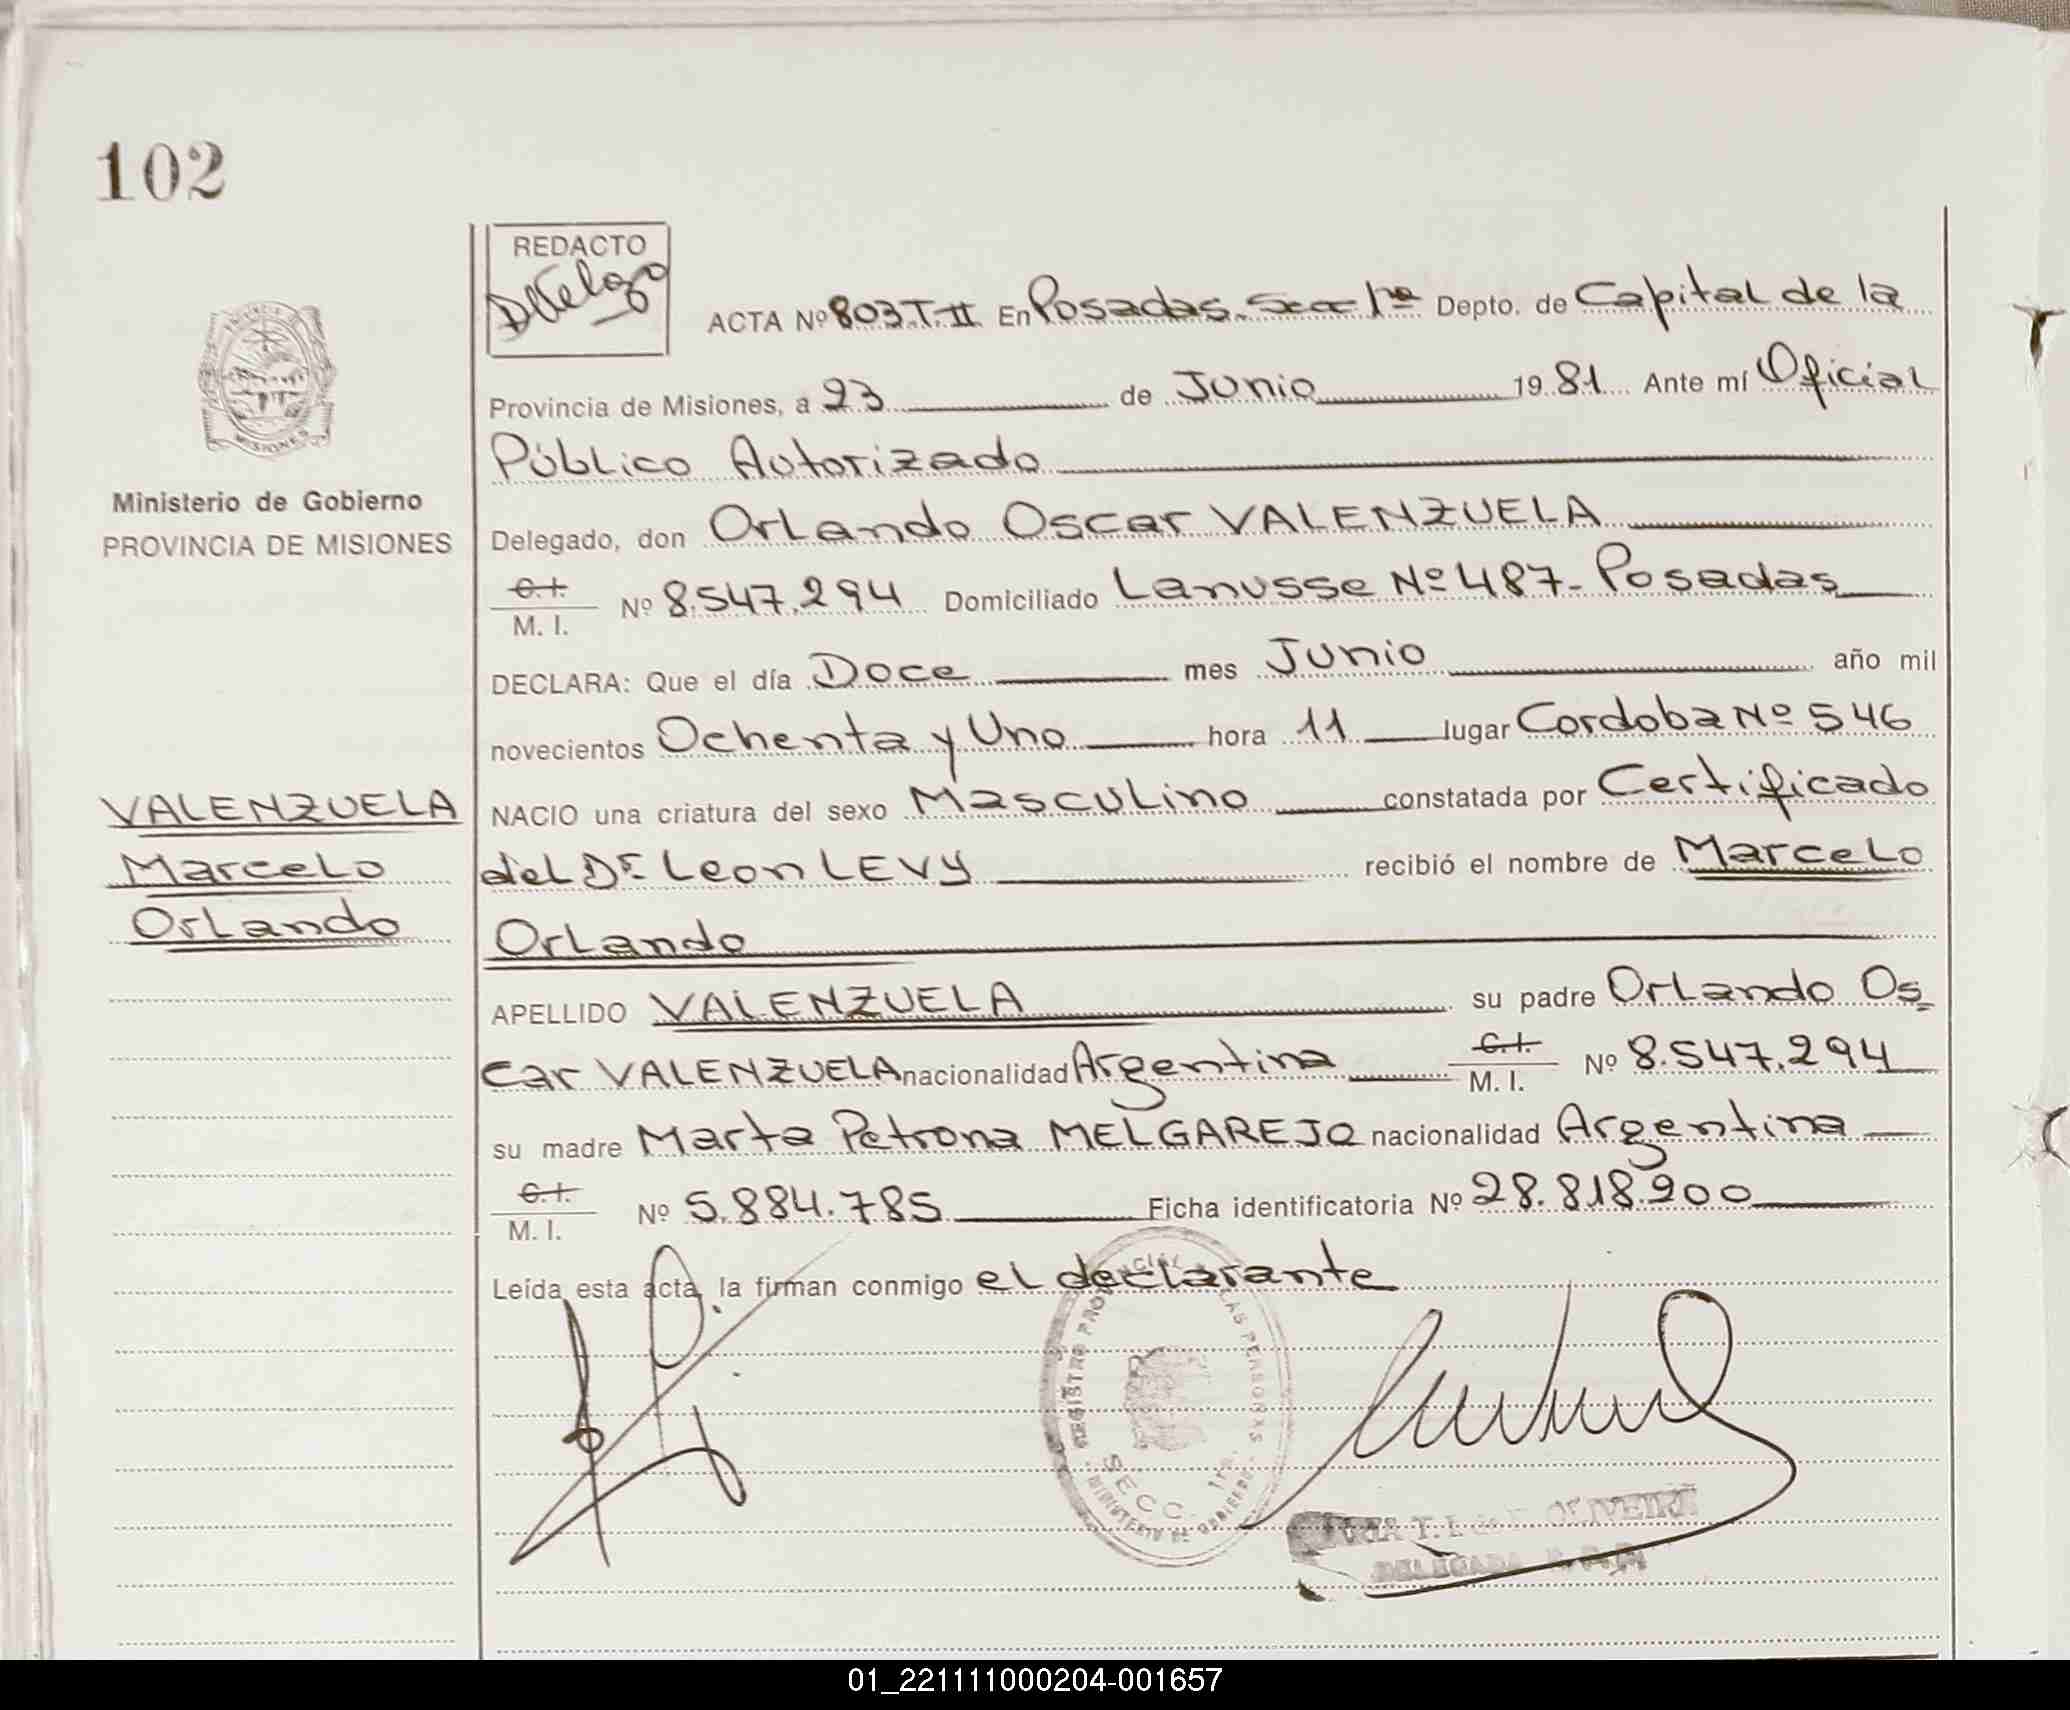 102
REDACTO
ACTA Nº 803.T.II. En Posadas. Secc 1ra Depto. de Capital de la
Provincia de Misiones, a 23 de Junio 1981 Ante mí Oficial
Público Autorizado
MISIONES
Ministerio de Gobierno
PROVINCIA DE MISIONES
Delegado, don Orlando Oscar VALENZUELA
C.I.
M. I. Nº 8.547.294 Domiciliado Lanusse Nº 487- Posadas
DECLARA: Que el día Doce mes Junio año mil
novecientos Ochenta y Uno hora 11 lugar Cordoba Nº 546
NACIO una criatura del sexo Masculino constatada por Certificado
del Dr. Leon LEVY recibió el nombre de Marcelo
Orlando
VALENZUELA
Marcelo
Orlando
APELLIDO VALENZUELA su padre Orlando Os-
car VALENZUELA nacionalidad Argentina C.I.
M. I. Nº 8.547.294
su madre Marta Petrona MELGAREJO nacionalidad Argentina
C.I.
M. I. Nº 5.884.785 Ficha identificatoria Nº 28.818.200
Leída esta acta, la firman conmigo el declarante
REGISTRO PROVINCIAL LAS PERSONAS
SECC. 1ra.
MINISTERIO DE GOBIERNO
T. OLIVEIRA
DELEGADA
01_221111000204-001657